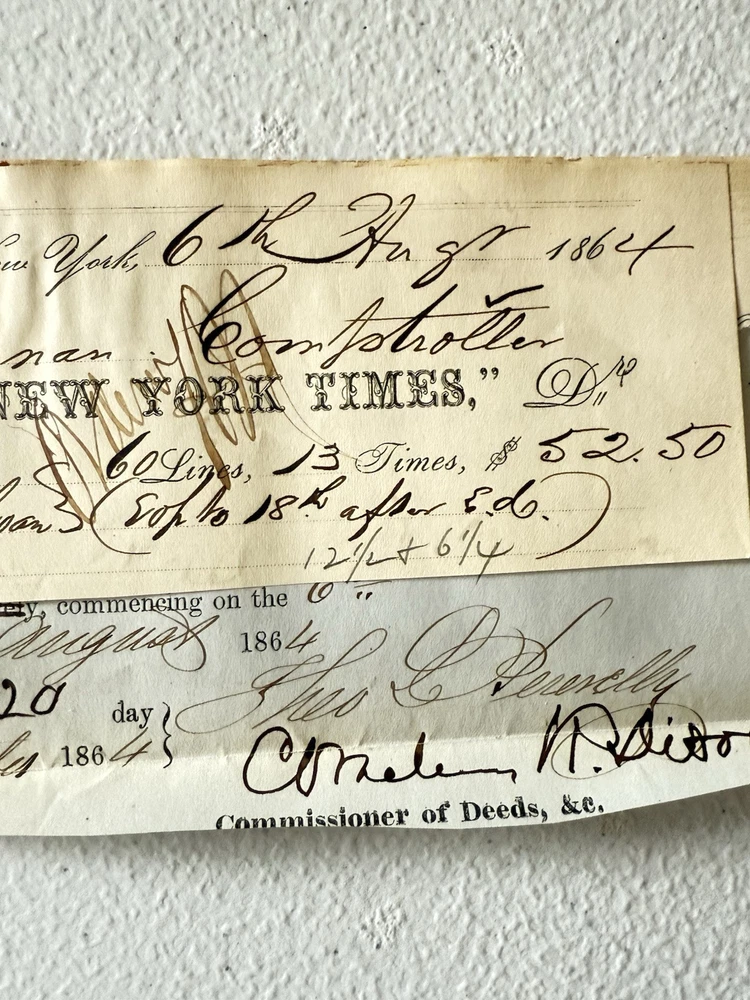 New York, 6th Augt 1864
nan Comptroller
NEW YORK TIMES," Dr
60 Lines, 13 Times, $ 52.50
(Eop to 18th after E.d.)
12 1/2 + 6 1/4
ety, commencing on the 6"
August 1864
20 day
1864
Theo
Cornelius N. Dixo
Commissioner of Deeds, &c.